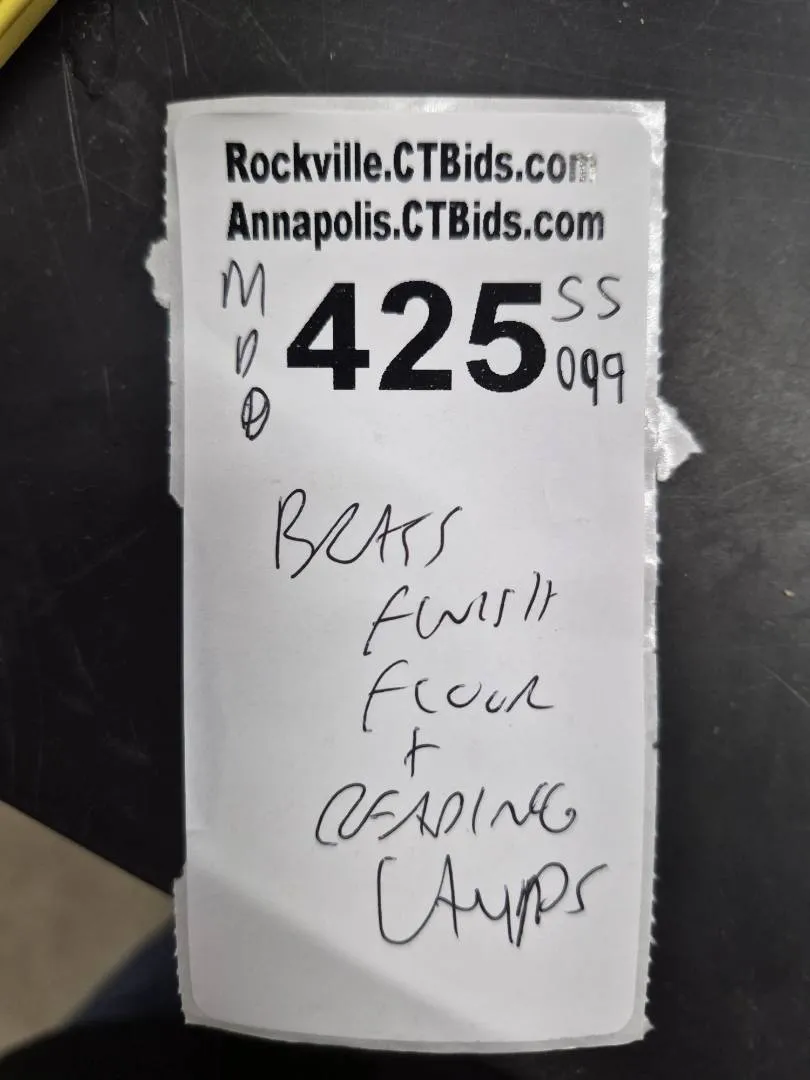 Rockville.CTBids.com
Annapolis.CTBids.com
M 425 SS
D 099
D
BRASS
FINISH
FLOOR
+
READING
LAMPS